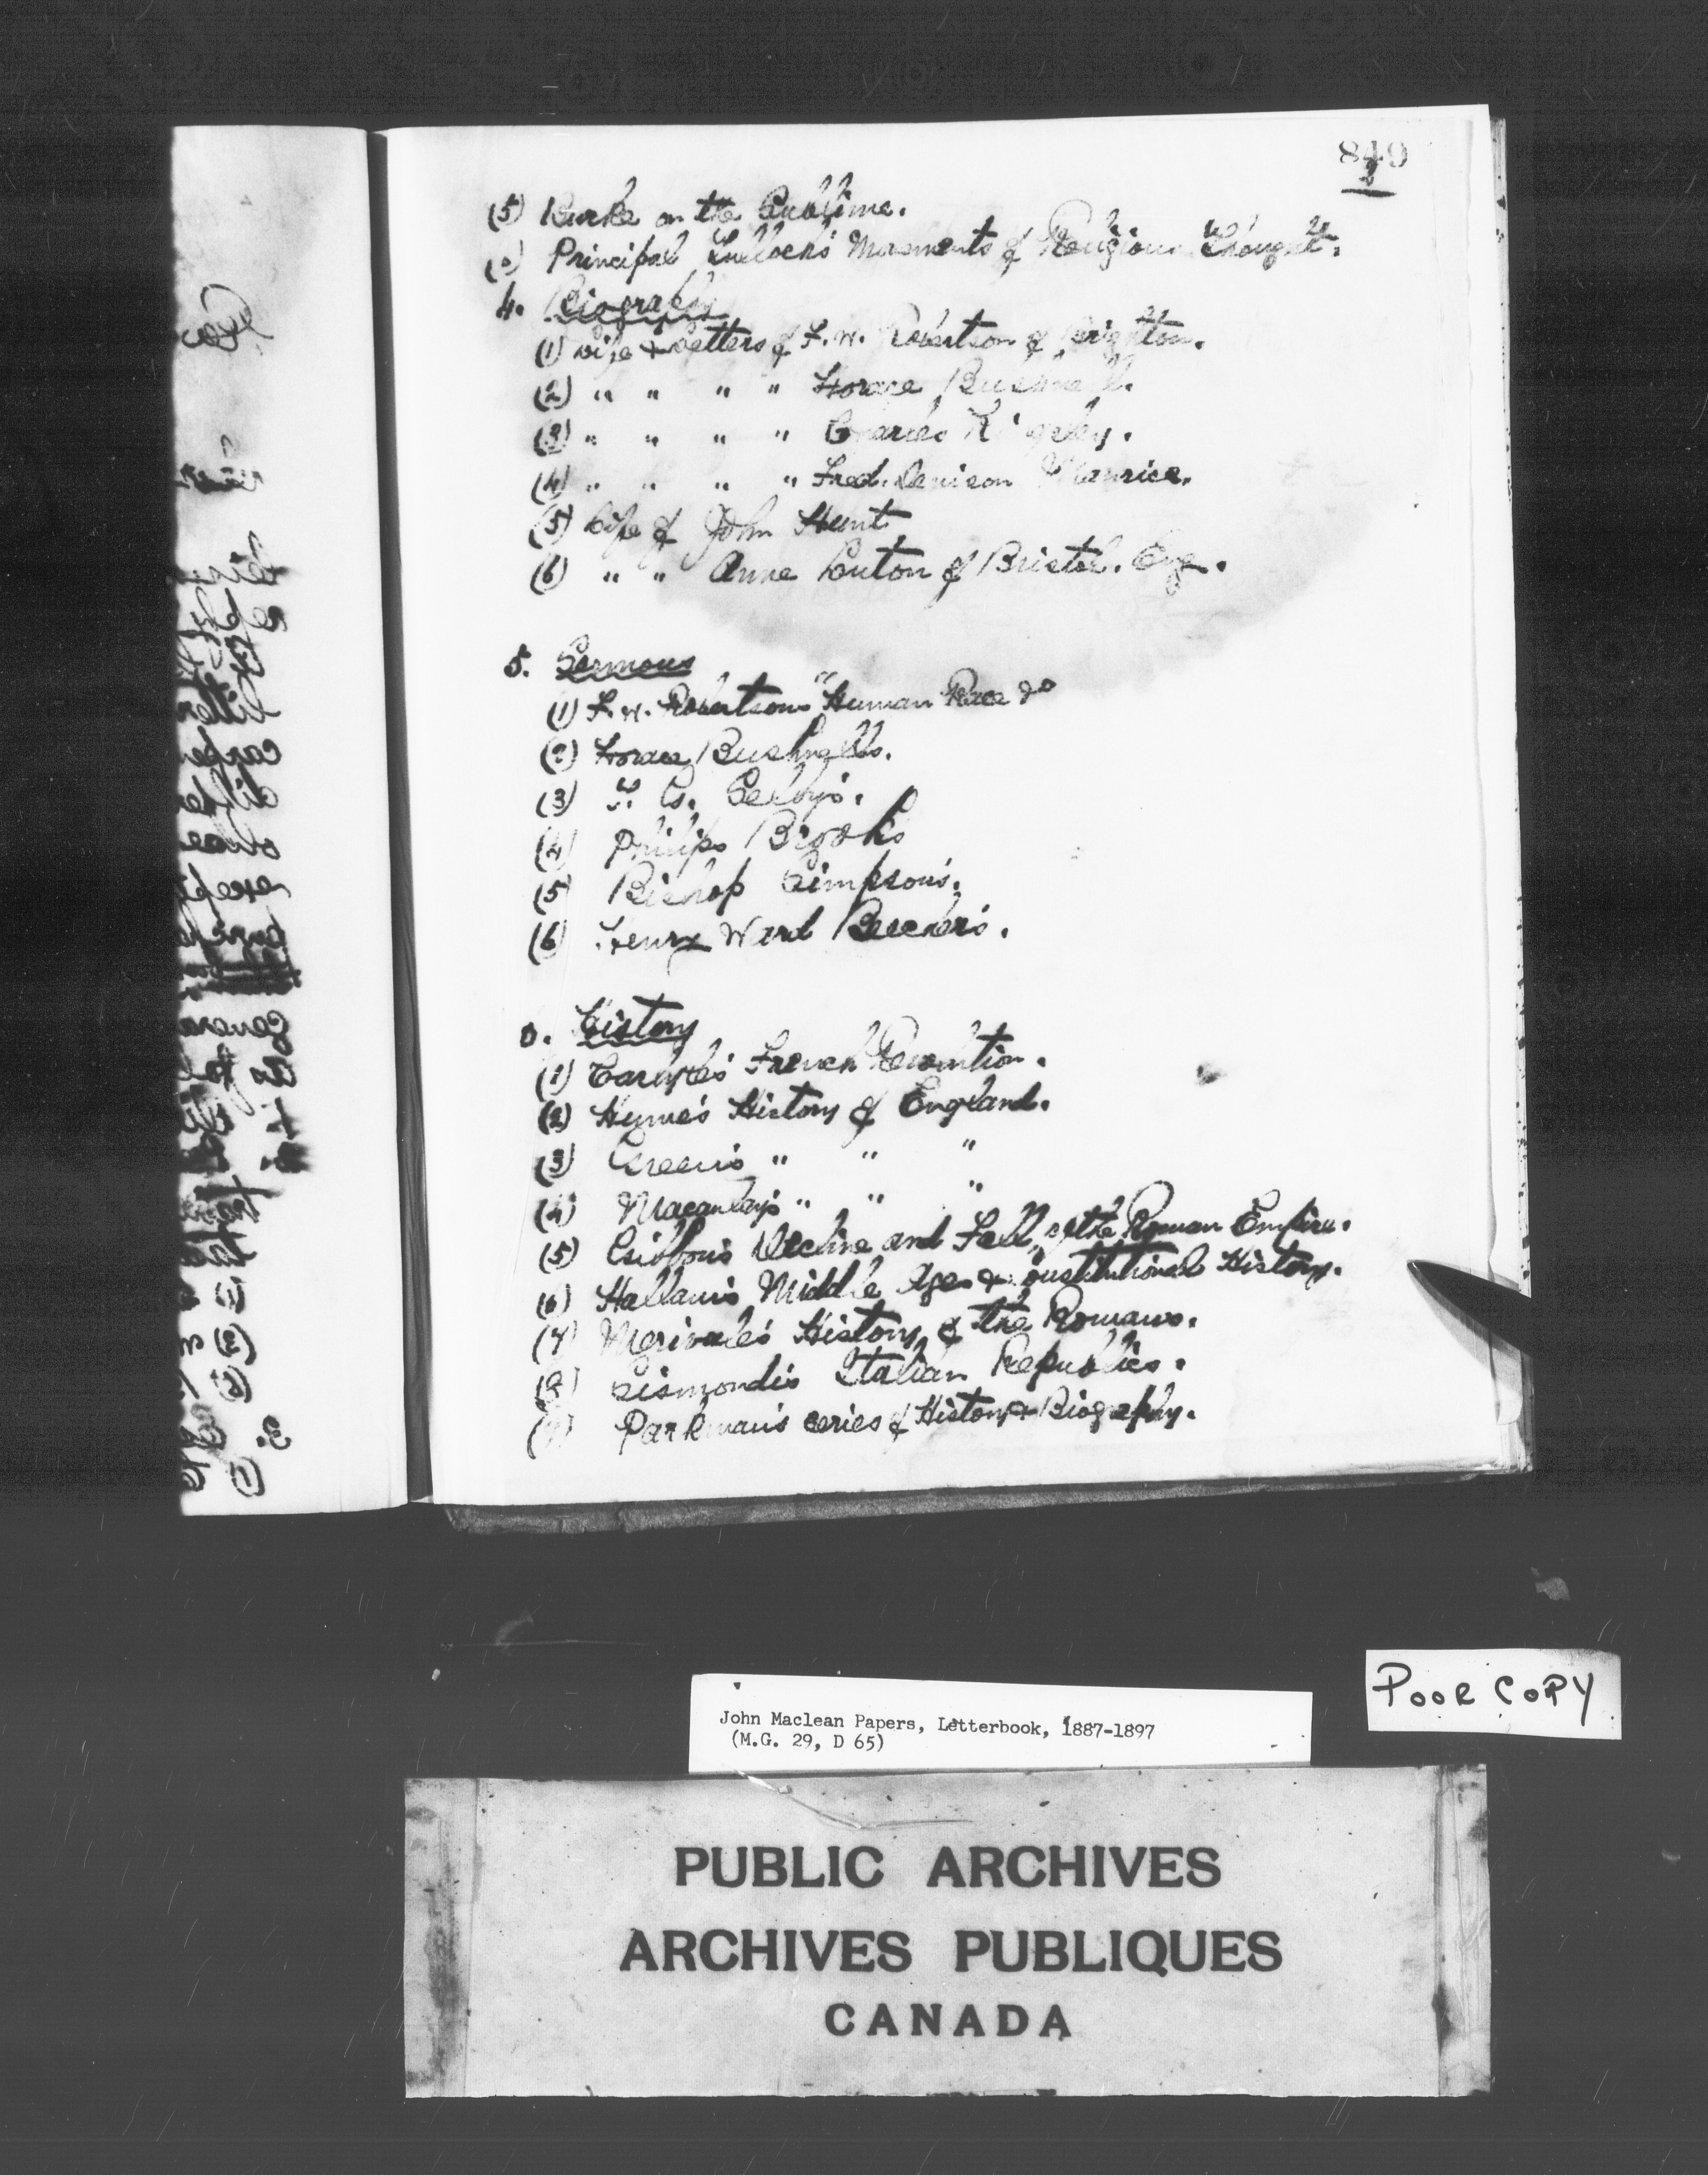 849
2
(5) Burke on the Sublime.
(6) Principal Tulloch's Movements of Religious Thought.
4. Biography
(1) Life & Letters of F. W. Robertson of Brighton.
(2) " " " " Horace Bushnell.
(3) " " " " Charles Kingsley.
(4) " " " " Fred. Denison Maurice.
(5) Life of John Hunt
(6) " " Anne Lutton of Bristol. Eng.
5. Sermons
(1) F. W. Robertson's "Human Race &c
(2) Horace Bushnell's.
(3) T. G. Selby's.
(4) Philips Brooks
(5) Bishop Simpson's.
(6) Henry Ward Beecher's.
6. History
(1) Carlyle's French Revolution.
(2) Hume's History of England.
(3) Green's " " "
(4) Macaulay's " " "
(5) Gibbon's Decline and Fall of the Roman Empire.
(6) Hallam's Middle Ages & Constitutional History.
(7) Merivale's History of the Romans.
(8) Sismondi's Italian Republics.
(9) Parkman's series of History & Biography.
POOR COPY
John Maclean Papers, Letterbook, 1887-1897
(M.G. 29, D 65)
PUBLIC ARCHIVES
ARCHIVES PUBLIQUES
CANADA